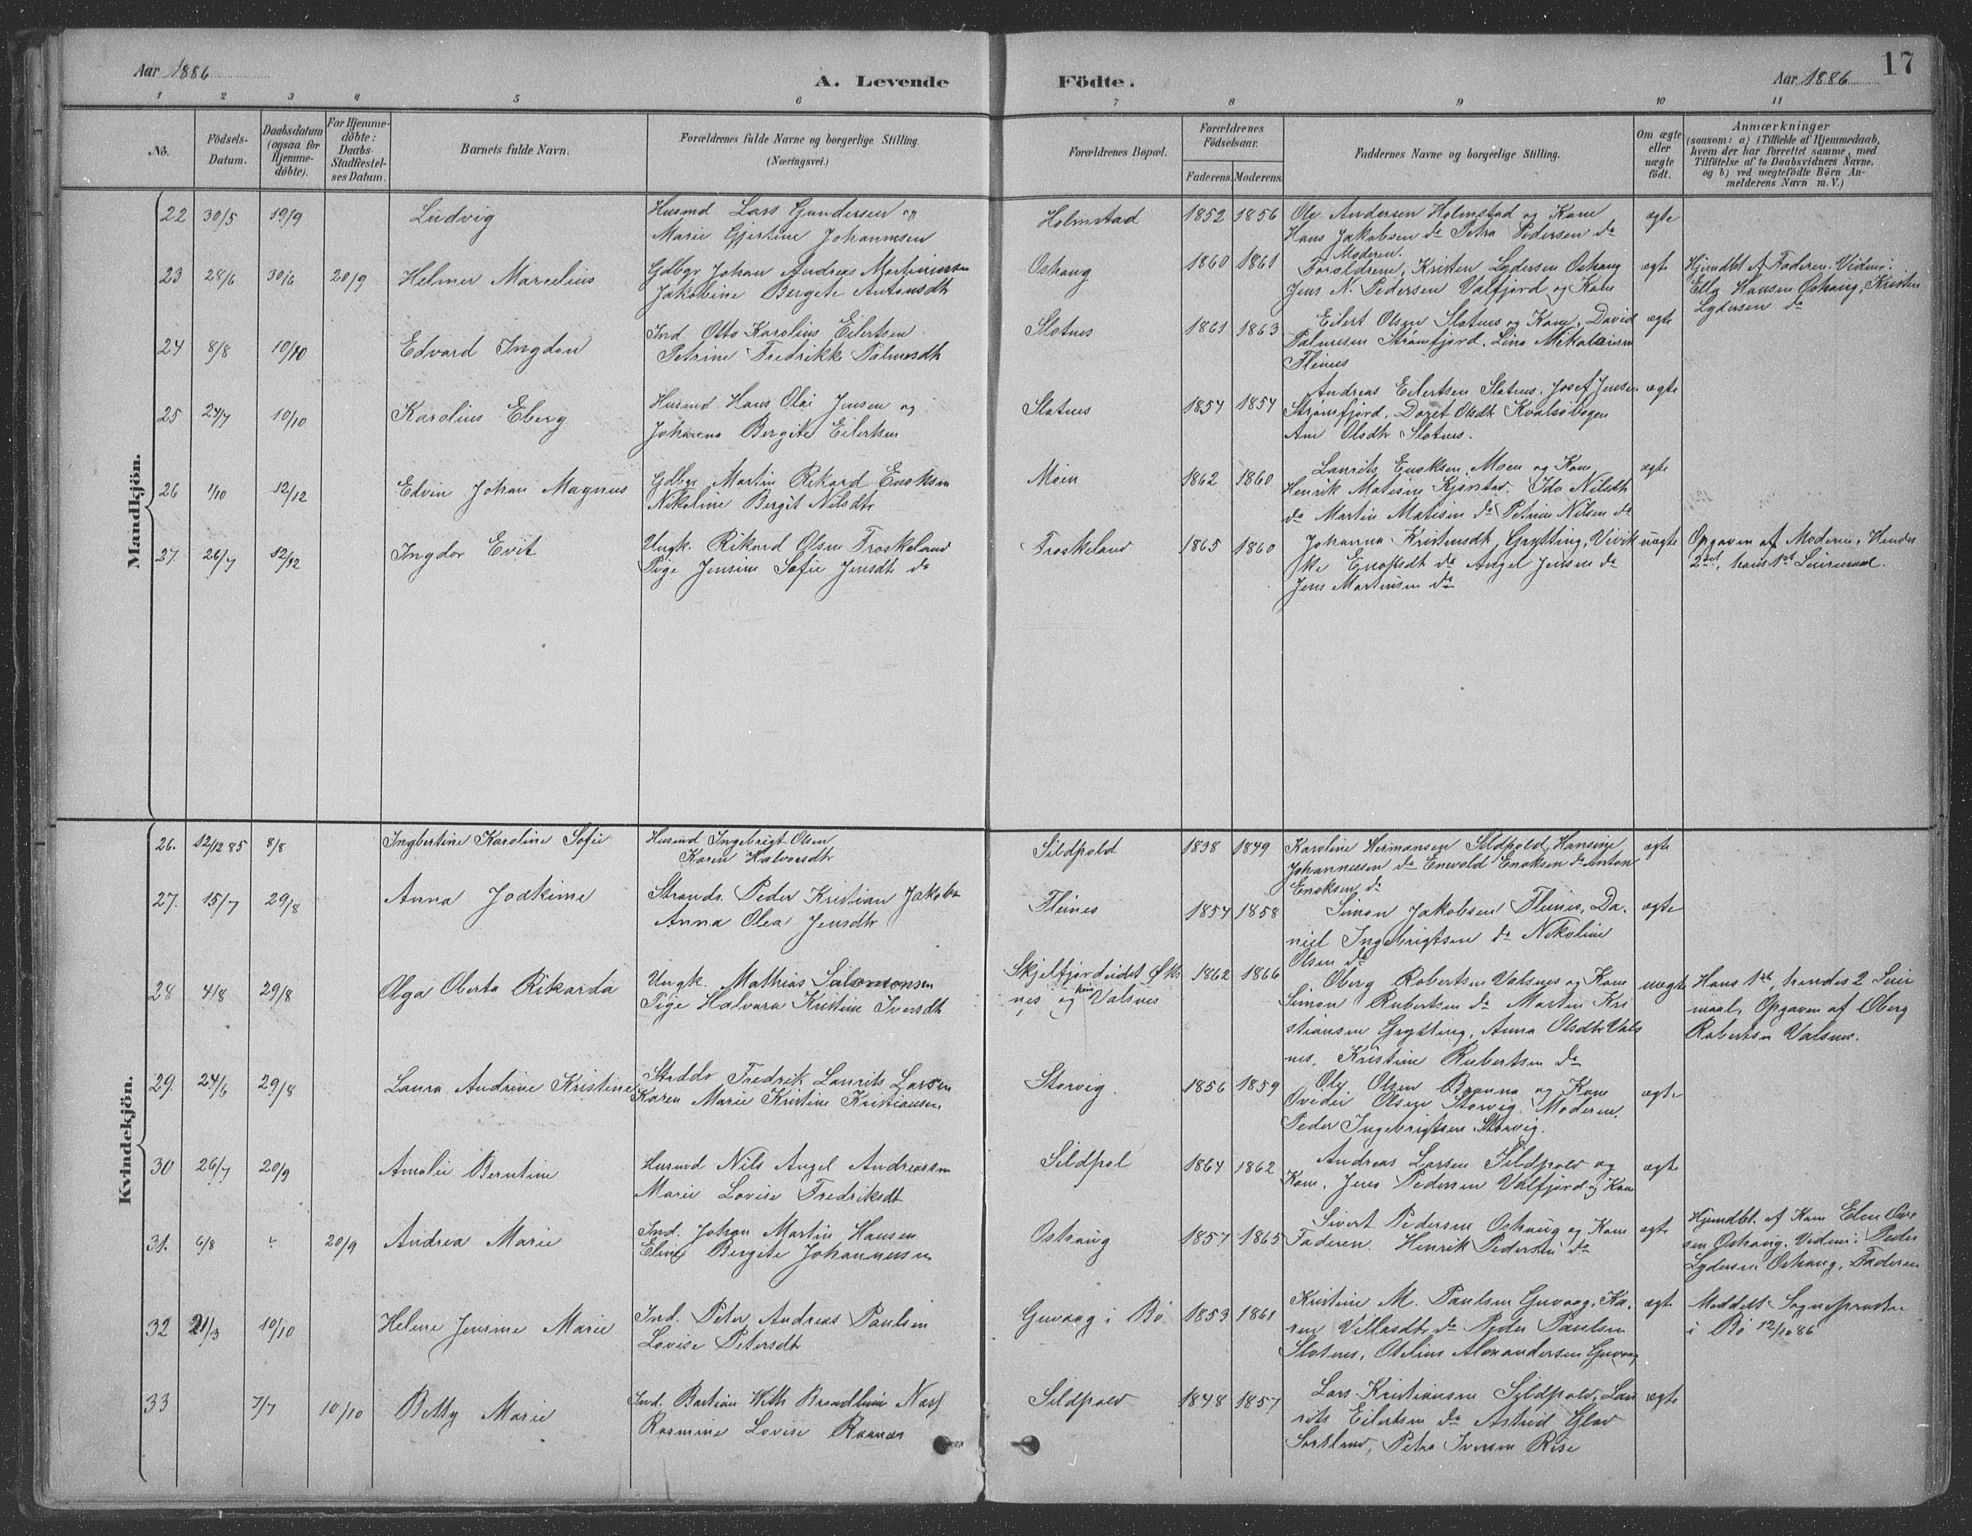 17
Aar 1886
A. Levende
Födte.
Aar 1886
1 2 3 4 5 6 7 8 9 10 11
No.
Födsels-
Datum.
Daabsdatum
(ogsaa for
Hjemme-
döbte).
For Hjemme-
döbte:
Daabs-
Stadfæstel-
ses Datum.
Barnets fulde Navn.
Forældrenes fulde Navne og borgerlige Stilling.
(Næringsvei.)
Forældrenes Bopæl.
Forældrenes
Födselsaar.
Faderens. Moderens.
Faddernes Navne og borgerlige Stilling.
Om ægte
eller
uægte
födt.
Anmærkninger
(saasom: a) i Tilfælde af Hjemmedaab,
hvem der har forrettet samme, med
Tilföielse af to Daabsvidners Navne,
og b) ved uægtefödte Börn An-
melderens Navn m. V.)
Mandkjön.
22 30/5 19/9 Ludvig
Husmd Lars Gundersen og
Marie Gjertine Johannesen
Holmstad 1852 1856
Ole Andersen Holmstad og Kone
Hans Jakobsen do Petra Pedersen do
ægte
23 28/6 30/6 20/9 Helmer Marcelius
Gdbgr Johan Andreas Martinussen
Jakobine Bergete Antonsdtr
Oshaug 1860 1861
Moderen.
Forældrene, Kristen Lydersen Oshaug
Jens N. Pedersen Valfjord og Kone
ægte
Hjemdbt af Faderen. Vidner:
Elly Hansen Oshaug, Kristen
Lydersen do
24 8/8 10/10 Edvard Ingdon
Ind. Otto Karolius Eilertsen
Petrine Fredrikke Palmesdtr
Slotnes 1861 1863
Eilert Olsen Slotnes og Kone, David
Palmesen Strømfjord, Lina Nikolaisen
Fleines
ægte
25 24/7 10/10 Karolius Eberg
Husmd Hans Olai Jensen og
Johanna Bergite Eilertsen
Slotnes 1854 1854
Andreas Eilertsen Slotnes, Josef Jensen
Strømfjord, Doret Olsdtr Kvalsøbogen
Ane Olsdtr Slotnes.
ægte
26 1/10 12/12 Edvin Johan Magnus
Gdbgr Martin Rikard Enoksen
Nikoline Bergit Nilsdtr
Moen 1862 1860
Laurits Enoksen Moen og Kone
Henrik Matisen Kjørstad. Ida Nilsdtr
do Martin Matisen do Petrine Nilsen do
ægte
27. 26/7 12/12 Ingdor Evit
Ungk. Rikard Olsen Froskeland
Pige Jensine Sofie Jensdtr do
Froskeland 1865 1860
Johanna Kristensdtr, Grytting,
Enoksdtr do Angel Jensen do
Jens Martinsen do
uægte
Opgaven af Moderen. Hendes
2det, hans 1st Leiermaal.
Kvindekjön.
26. 12/12 85 8/8 Ingbertine Karoline Sofie
Husmd Ingebrigt Olsen
Karen Halvorsdtr
Sildpold 1838 1849
Karoline Hermansen Sildpold, Hansine
Johannessen do Enevold Enoksen do Anton
Enoksen do
ægte
27. 15/7 29/8 Anna Jodkime
Strands. Peder Kristian Jakobs
Anna Olea Jensdtr
Fleines 1854 1858
Simon Jakobsen Fleines, Da-
niel Ingebrigtsen do Nikoline
Olsen do
ægte
28 4/8 29/8 Olga Oberta Rikarda
Ungk. Mathias Salomonsen
Pige Halvara Kristine Iversdtr
Skjelfjordeidet Øks
nes, og hun Valsnes
1862 1866
Oberg Robertsen Valsnes og Kone
Simon Rubertsen do Martin Kri
stiansen Grytting, Anna Olsdtr Vals
nes, Kristine Rubertsen do
uægte
Hans 1st, hendes 2 Leier
maal, Opgaven af Oberg
Robertsen Valsnes.
29. 24/6 29/8 Laura Andrine Kristine
Fredrik Laurits Larsen
Karen Marie Kristine Kristiansen
Storvig 1856 1859
Ole Olsen Branna og Kone
Ovedie Olsen Storvig. Moderen.
Peder Ingebrigtsen Storvig.
ægte
30 26/7 20/9 Amalie Berntine
Husmd Nils Angel Andreassen
Marie Lovise Fredriksdtr
Sildpol 1864 1862
Andreas Larsen Sildpold og
Kone, Jens Pedersen Valfjord og Kone
ægte
31. 6/8 " 20/9 Andrea Marie
Ind. Johan Martin Hansen
Eline Bergete Johannessen
Oshaug 1857 1865
Sivert Pedersen Oshaug og Kone
Faderen. Henrik Pedersen do
ægte
Hjemdbt. af Kone Elen Ove
sen Oshaug. Vidner: Peder
Lydersen Oshaug, Faderen
32 21/3 10/10 Helene Jensine Marie
Ind. Peter Andreas Paulsen
Lovise Petersdtr
Guvaag i Bø 1853 1861
Kristine M. Paulsen Guvaag, Ka-
ren Villasdtr do Peder Paulsen
Slotnes, Otelius Alexandersen Guvaag
ægte
Meddelt Sognepræsten
i Bø 12/10 86
33 7/7 10/10 Betty Marie
Ind. Bastian With Brodtkorb
Rasmine Lovise
Sildpold 1848 1857
Lars Kristiansen Sildpold, Lau
rits Eilertsen do Astrid Glav
Sortland, Petra Iversen Rise
ægte